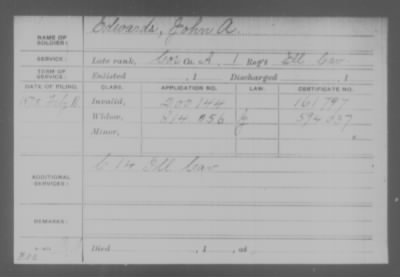 Edwards, John A.
NAME OF SOLDIER:
SERVICE: Late rank, Cor Co. A, 1 Reg't Ill Cav
TERM OF SERVICE: Enlisted , 1 Discharged , 1
DATE OF FILING. CLASS. APPLICATION NO. LAW. CERTIFICATE NO.
Invalid, 200144 161797
Widow, 814 856 594 037
Minor,
ADDITIONAL SERVICES: C 14 Ill Cav
REMARKS:
Died , 1 , at